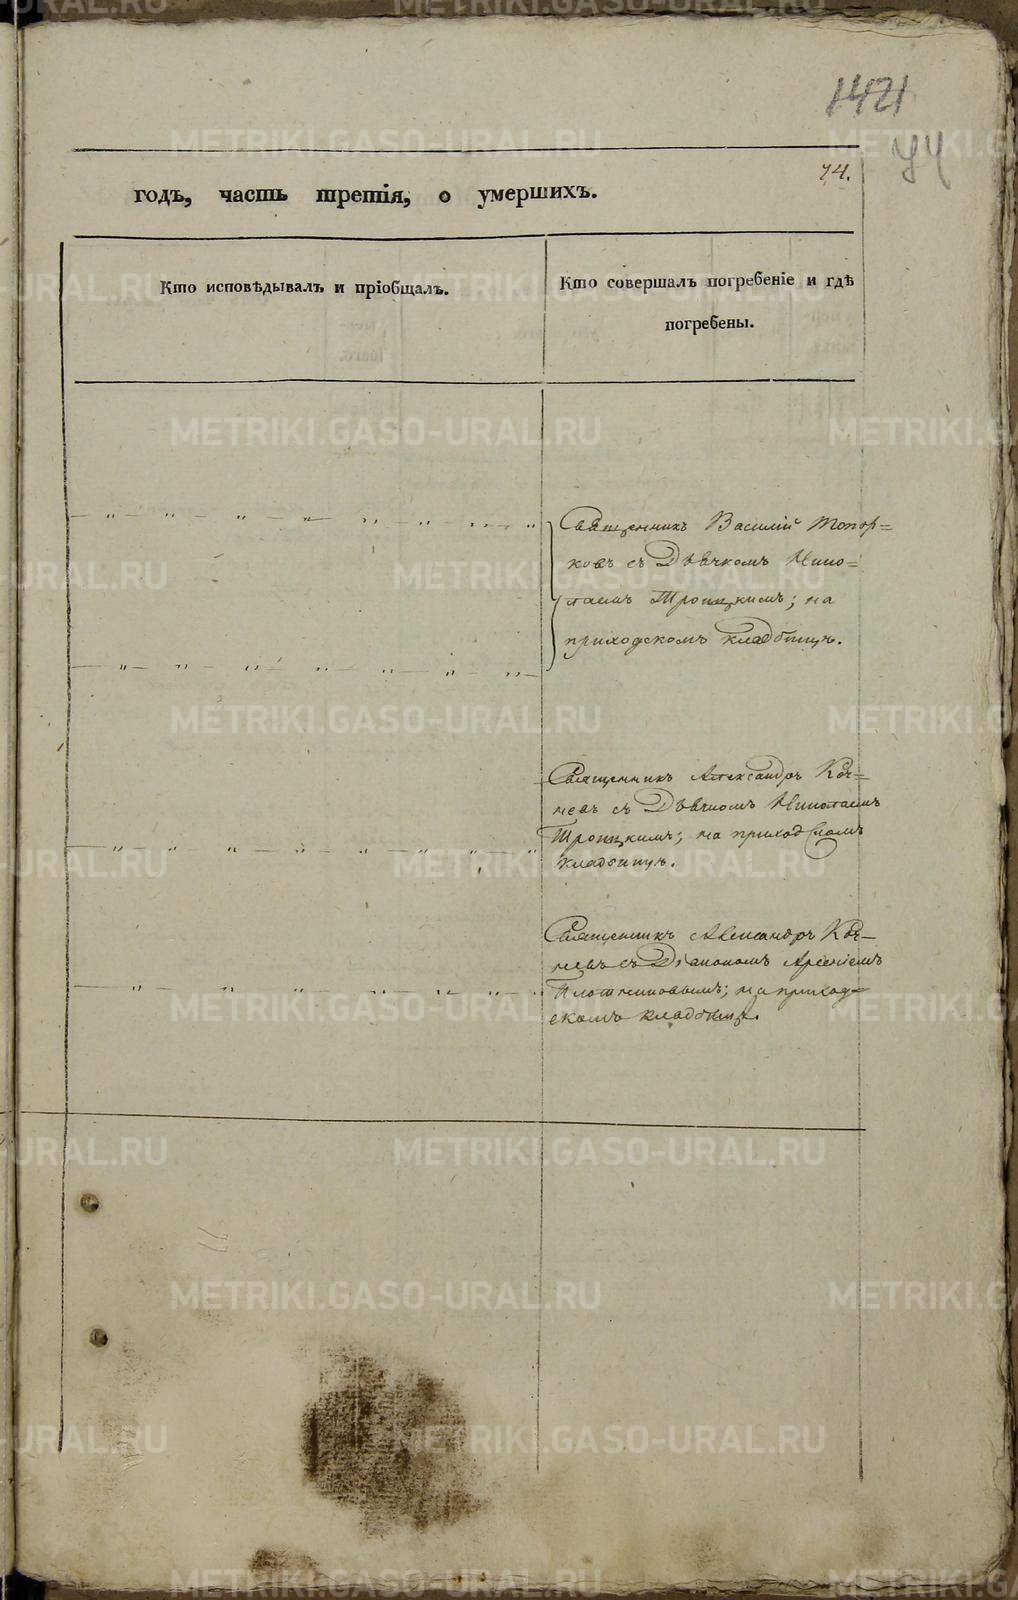 1421
74.
74
годъ, часть третія, о умершихъ.
Кто исповѣдывалъ и пріобщалъ.
Кто совершалъ погребеніе и гдѣ
погребены.
Священникъ Василій Топор=
ковъ съ Дьячкомъ Нико=
лаемъ Троицкимъ; на
приходскомъ кладбищѣ.
Священникъ Александръ
съ Дьячкомъ Николаемъ
Троицкимъ; на приходскомъ
кладбищѣ.
Священникъ Александръ
съ Діакономъ Арсеніемъ
Плотниковымъ; на приход=
скомъ кладбищѣ.
METRIKI.GASO-URAL.RU